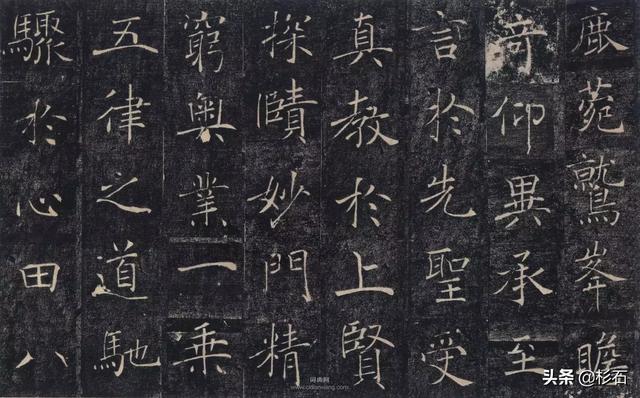 鹿菀鷲峯瞻
奇仰異承至
言於先聖受
真教於上賢
探賾妙門精
窮奧業一乘
五律之道馳
驟於心田八
词典网
www.cidianwang.com
头条 @杉石